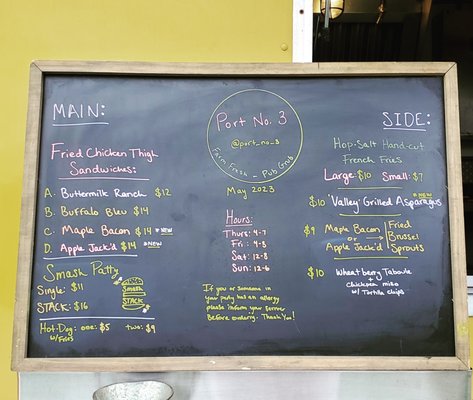 MAIN:
Fried Chicken Thigh
Sandwiches:
A. Buttermilk Ranch $12
B. Buffalo Bleu $14
C. Maple Bacon $14 *NEW
D. Apple Jack'd $14 *NEW
Smash Patty
Single: $11
STACK: $16
SMASH
STACK
Hot-Dog: one: $5 two: $9
w/Fries
Port No. 3
@port_no_3
Farm Fresh - Pub Grub
May 2023
Hours:
Thurs: 4-7
Fri: 4-8
Sat: 12-8
Sun: 12-6
If you or someone in
your party has an allergy
please inform your server
Before ordering. Thank You!
SIDE:
Hop-Salt Hand-cut
French Fries
Large: $10 Small: $7
*NEW
$10 'Valley' Grilled Asparagus
$9 Maple Bacon
or
Apple Jack'd
Fried
Brussel
Sprouts
$10 Wheatberry Taboule
+
Chickpea miso
w/ Tortilla chips